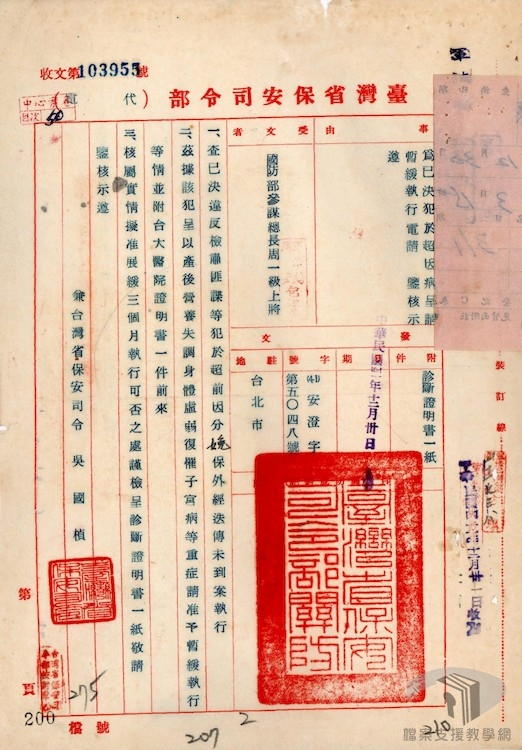 收文第103955號
臺灣省保安司令部（代電）
事由
為已決犯於超因病呈請
暫緩執行電請 鑒核示
遵
受文者
國防部參謀總長周一級上將
附件
診斷證明書一紙
日期
中華民國四一年十二月卅日
發文
字號
(41)安澄字
第五〇四八號
駐地
台北市
一、查已決違反檢肅匪諜等犯於超前因分娩保外經迭傳未到案執行
二、茲據該犯呈以產後營養失調身體虛弱復罹子宮病等重症請准予暫緩執行
等情並附台大醫院證明書一件前來
三、核屬實情擬准展緩三個月執行可否之處謹檢呈診斷證明書一紙敬請
鑒核示遵
兼台灣省保安司令 吳國楨
臺灣省保安司令部關防
裝訂線
第
頁
200
檔號
275
207
2
210
檔案支援教學網